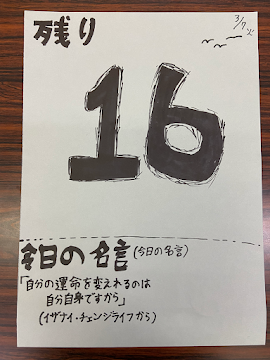 残り
3/7 火
16
今日の名言(今日の名言)
「自分の運命を変えれるのは
自分自身ですから」
(イザナイ・チェンジライフから)